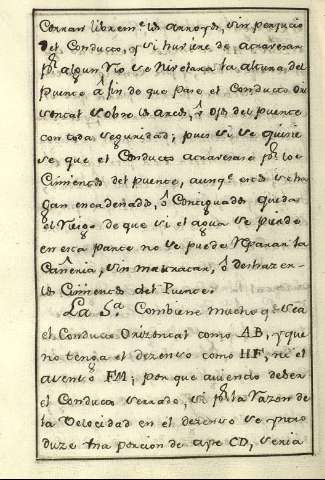 Corran librem.te los arroyos, sin perjuicio
del Conducto, y si huviere de atravesar
p.r algun Rio se nivelara la altura del
Puente â fin de que pase el Conducto ori
sontal sobre los arcos, ô ojos del puente
con toda seguridad; pues si se quisie
se, que el Conducto atravesase p.r los
Cimientos del puente, aunq.e estos se ha
gan encadenados, ô Contiguados queda
el riesgo de que si el agua se pierde
en esta parte no se puede reparar la
Cañeria, sin maltratar, ô deshazer
los Cimientos del Puente.
La 5.a Combiene mucho q.e sea
el Conducto Orizontal como AB, y que
no tenga el desenso como HF, ni el
asenso FM; por que aviendo de ser
el Conducto serrado, si p.r la razon de
la Velocidad en el desenso se yntro
duze una porcion de ayre CD, seria